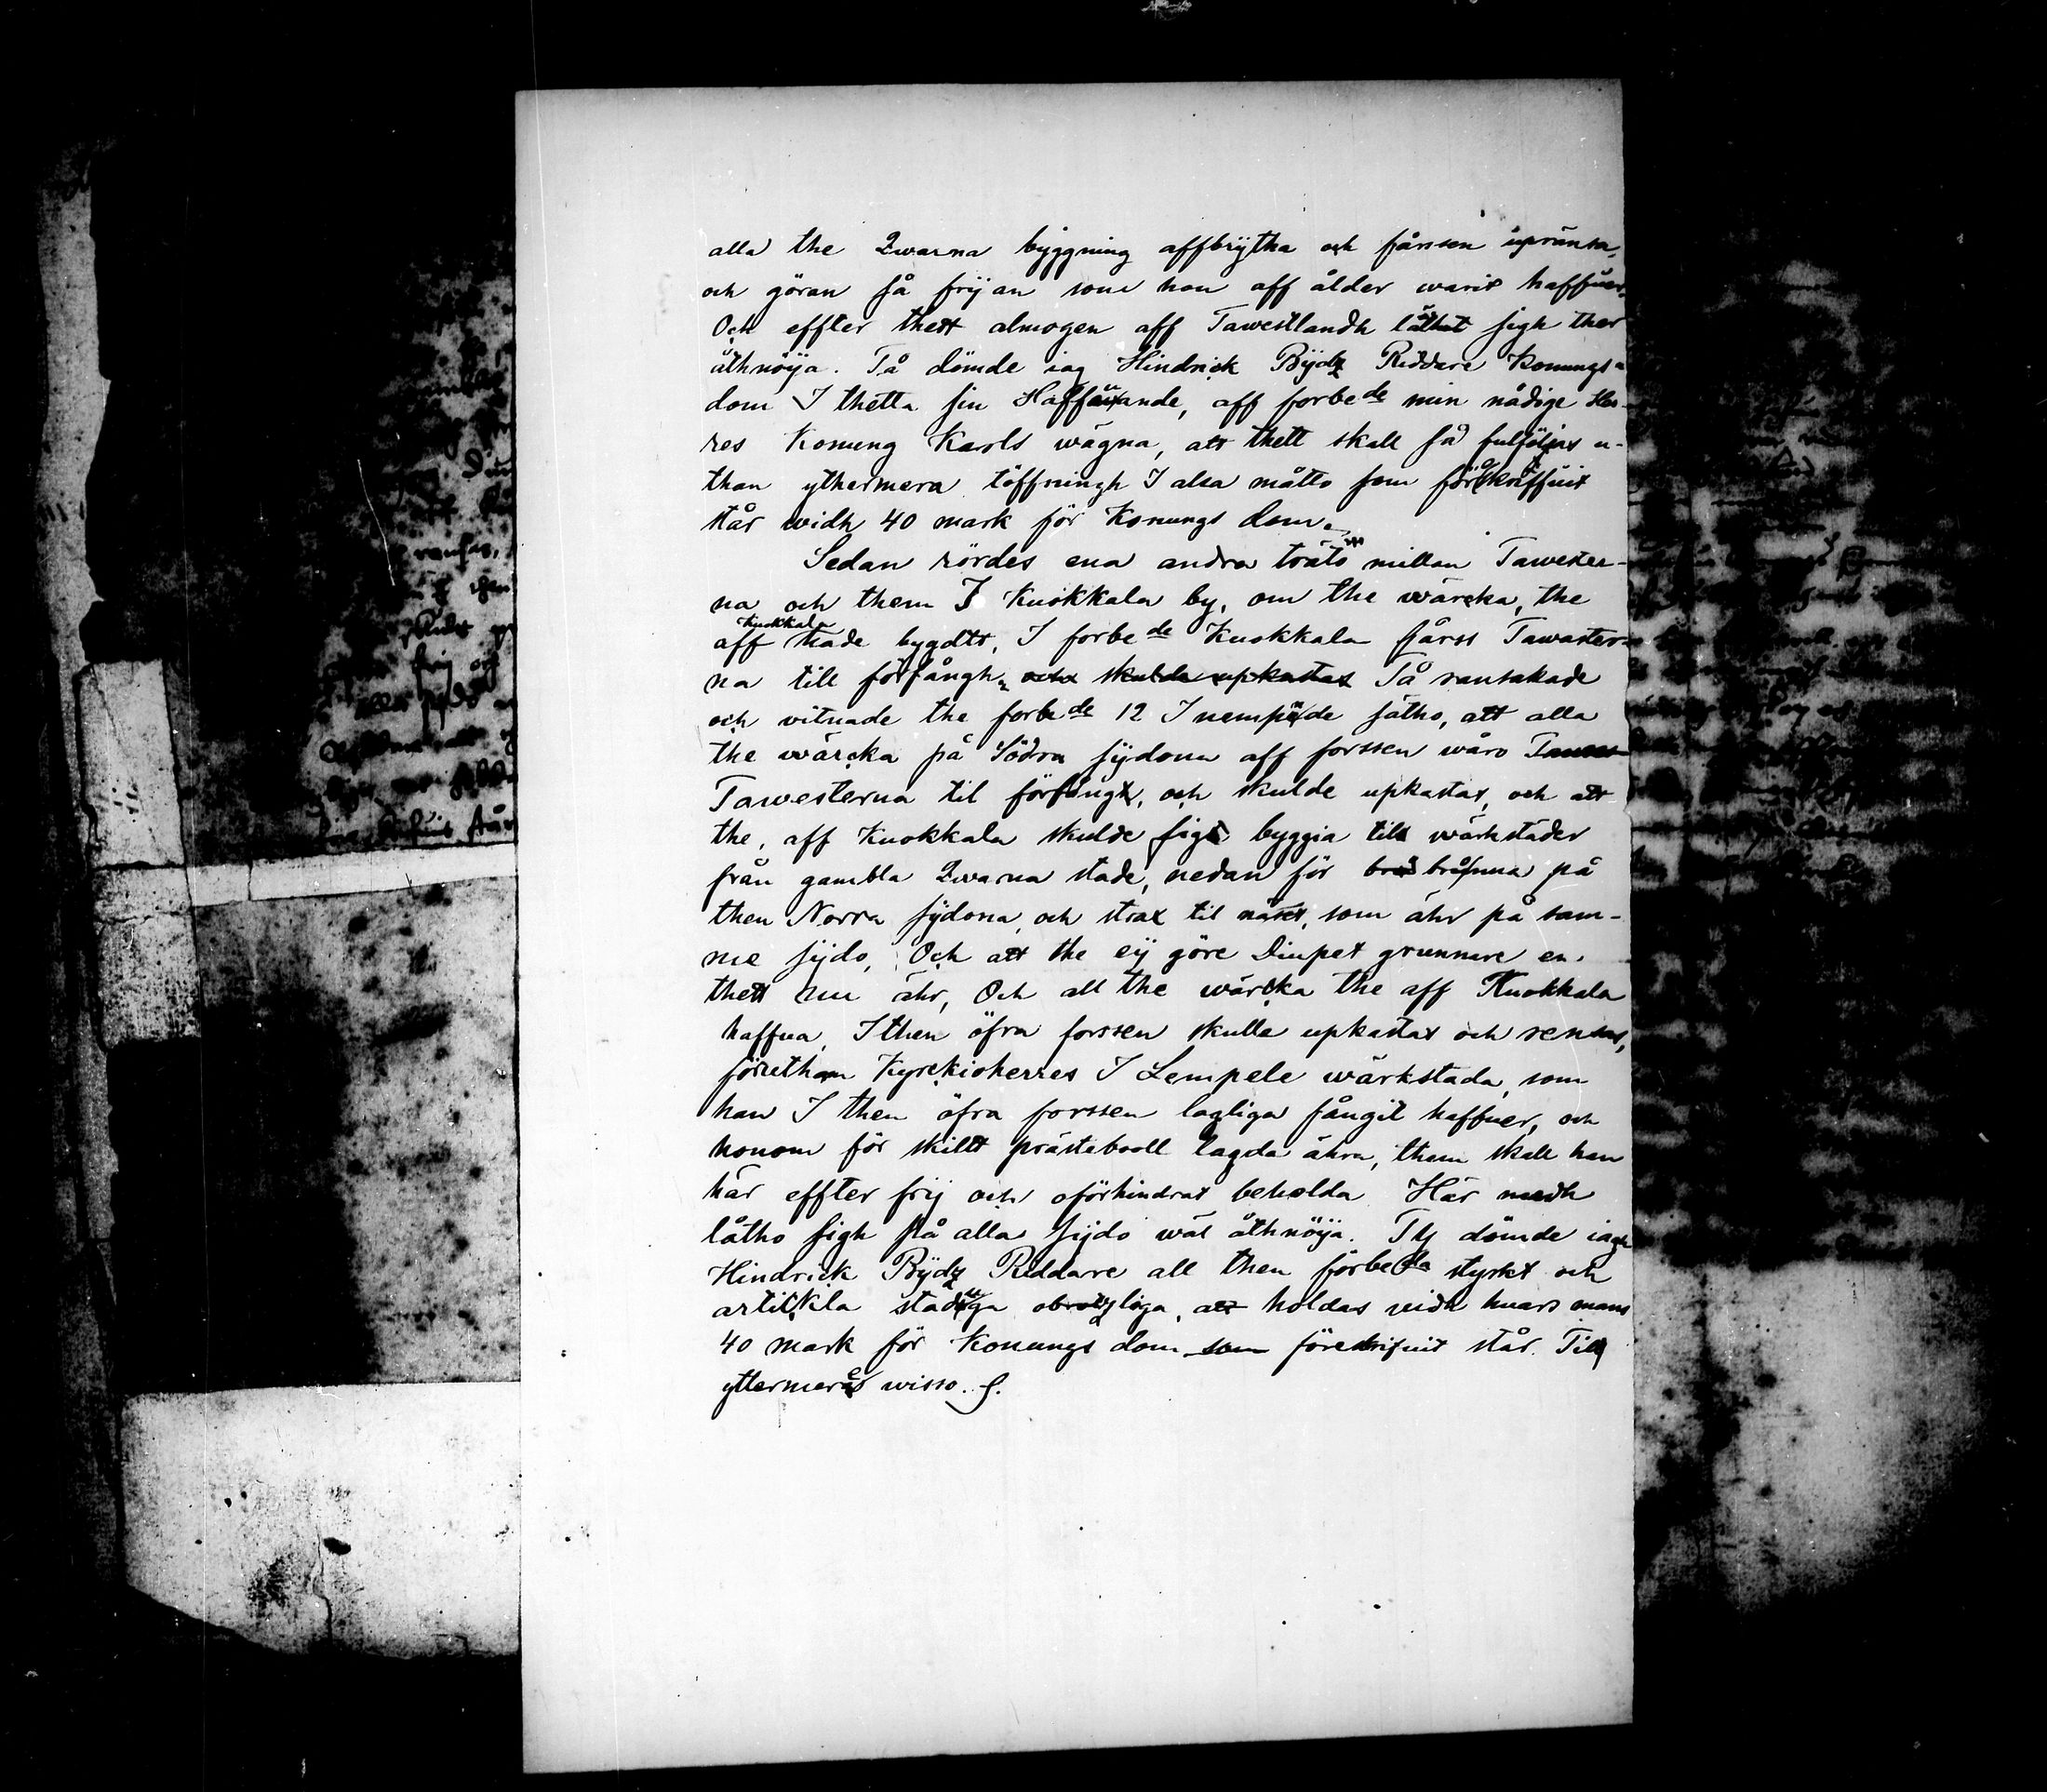 alla the Qwarna byggning affbrijtha och fårsen upränsa,
och göran så frij an som han aff ålder warit haffuer.
Och effter thett almogen aff Tawestlandh låthet sigh ther
åthnöija. Tå dömde iag Hindrick Bijdz Riddare Konungs-
dom I thetta sin Haffuande, aff forbede min nådige Her-
res Konung Karls wägna, att thett skall så fulföljas u-
than ythermera töffningh I alsa måtto som förskriffuit
står widh 40 mark för Konungs dom.
Sedan rördes ena andra träto millan Tawester-
na och them I Kuokkala by, om the wärcka, the
aff Kuokkala hade bygdtt, I forbede Kuokkala fårss Tawaster-
na till förfångh, och skulde upkastas Tå ransakade
och vitnade the forbede 12 I nempnde sätho, att alla
the wärcka på Södra sijdonn aff forssen wåro Tawes-
Tawesterna til förfångh, och skulde upkastas, och att
the, aff Kuokkala skulde sigh byggia till wärkstäder
från gambla Qwarna stade, nedan för brå brånna på
then Norra sijdona, och strax til näset, som ähr på sam-
me sijdo, Och att the eij göre Diupet grunnare en
thett nu ähr, Och all the wärcka the aff Kuokkala
haffua, I then öfra forssen skulle upkastas och rensas,
förutham Kyrckioherres I Lempele wärkstada, som
han I then öfra forssen lagliga fångit haffuer, och
honom för skillt prästebooll lagda ähra, them skall han
här effter frij och oförhindrat beholda Här medh
låtho sigh på alla sijdo wäl åthnöija. Ty dömde iagh
Hindrick Bijdz Riddarre all then förbeda styckt och
artickla stadiga obrotzliga, att holdas widh hwars mans
40 mark för Konungs dom som föreskrifuit står. Till
yttermeres wisso. S.